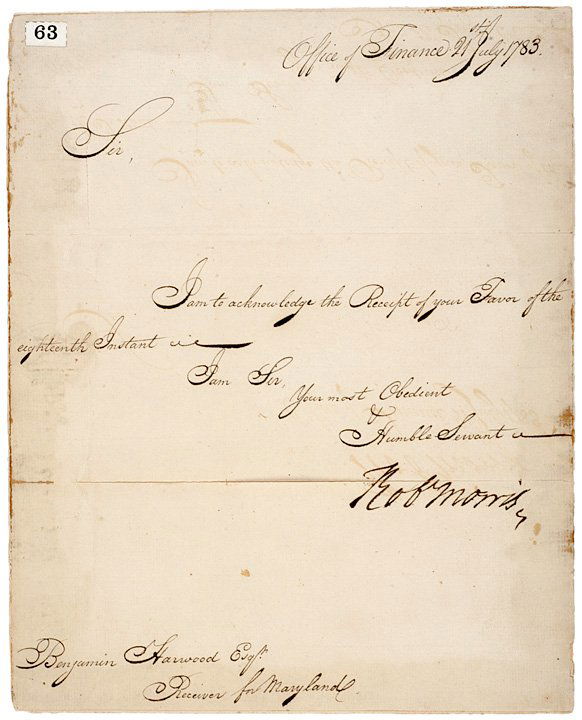 63
Office of Finance 21st July 1783.
Sir,
I am to acknowledge the Receipt of your Favor of the
eighteenth Instant
I am Sir,
Your most Obedient
&
Humble Servant
Robt Morris
Benjamin Harwood Esqr.
Receiver for Maryland.